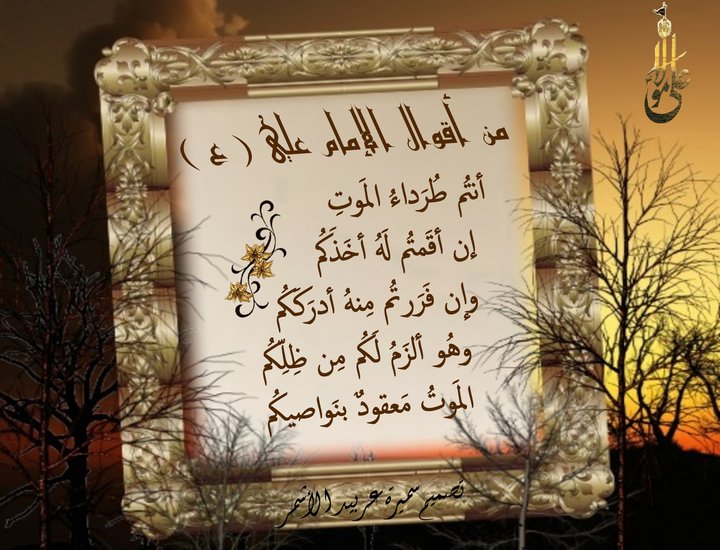 من أقوال الإمام علي ( ع )
أنتُم طُرَداءُ المَوتِ
إن أقَمتُم لَهُ أخَذَكُم
وإن فَرَرتُم مِنهُ أدرَكَكُم
وهُو ألزَمُ لَكُم مِن ظِلِّكُم
المَوتُ مَعقودٌ بنَواصيكُم
تصميم سميرة عربيد الأشمر